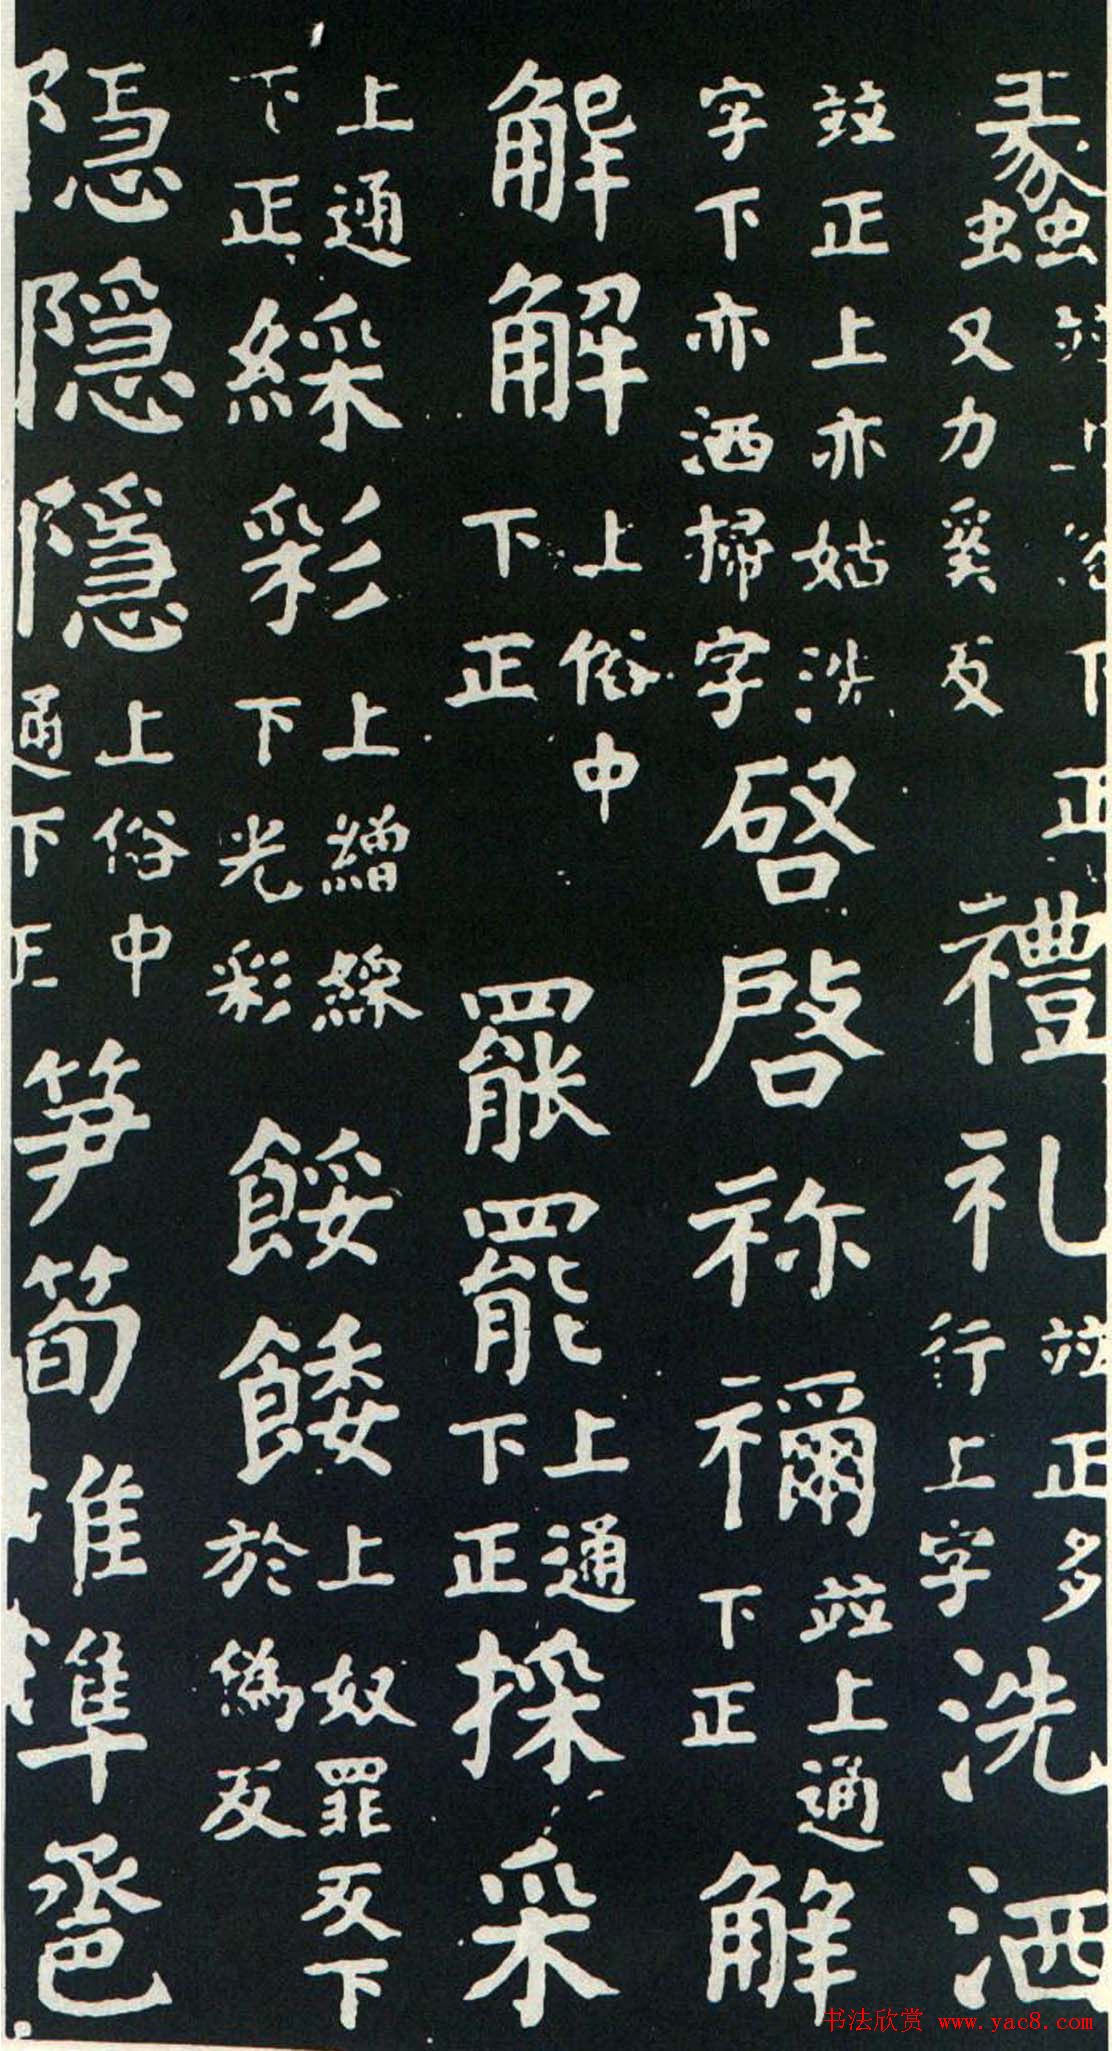 蠡下正又力奚反禮礼並正多行上字洗洒
並正上亦姑洗字下亦洒掃字啓啓祢禰並上通下正解
解解上俗中下正罷罷上通下正採采
上通下正綵彩上繒綵下光彩餒餧上奴罪反下於偽反
隐隠隱上俗中通下正笋筍准準
书法欣赏 www.yac8.com